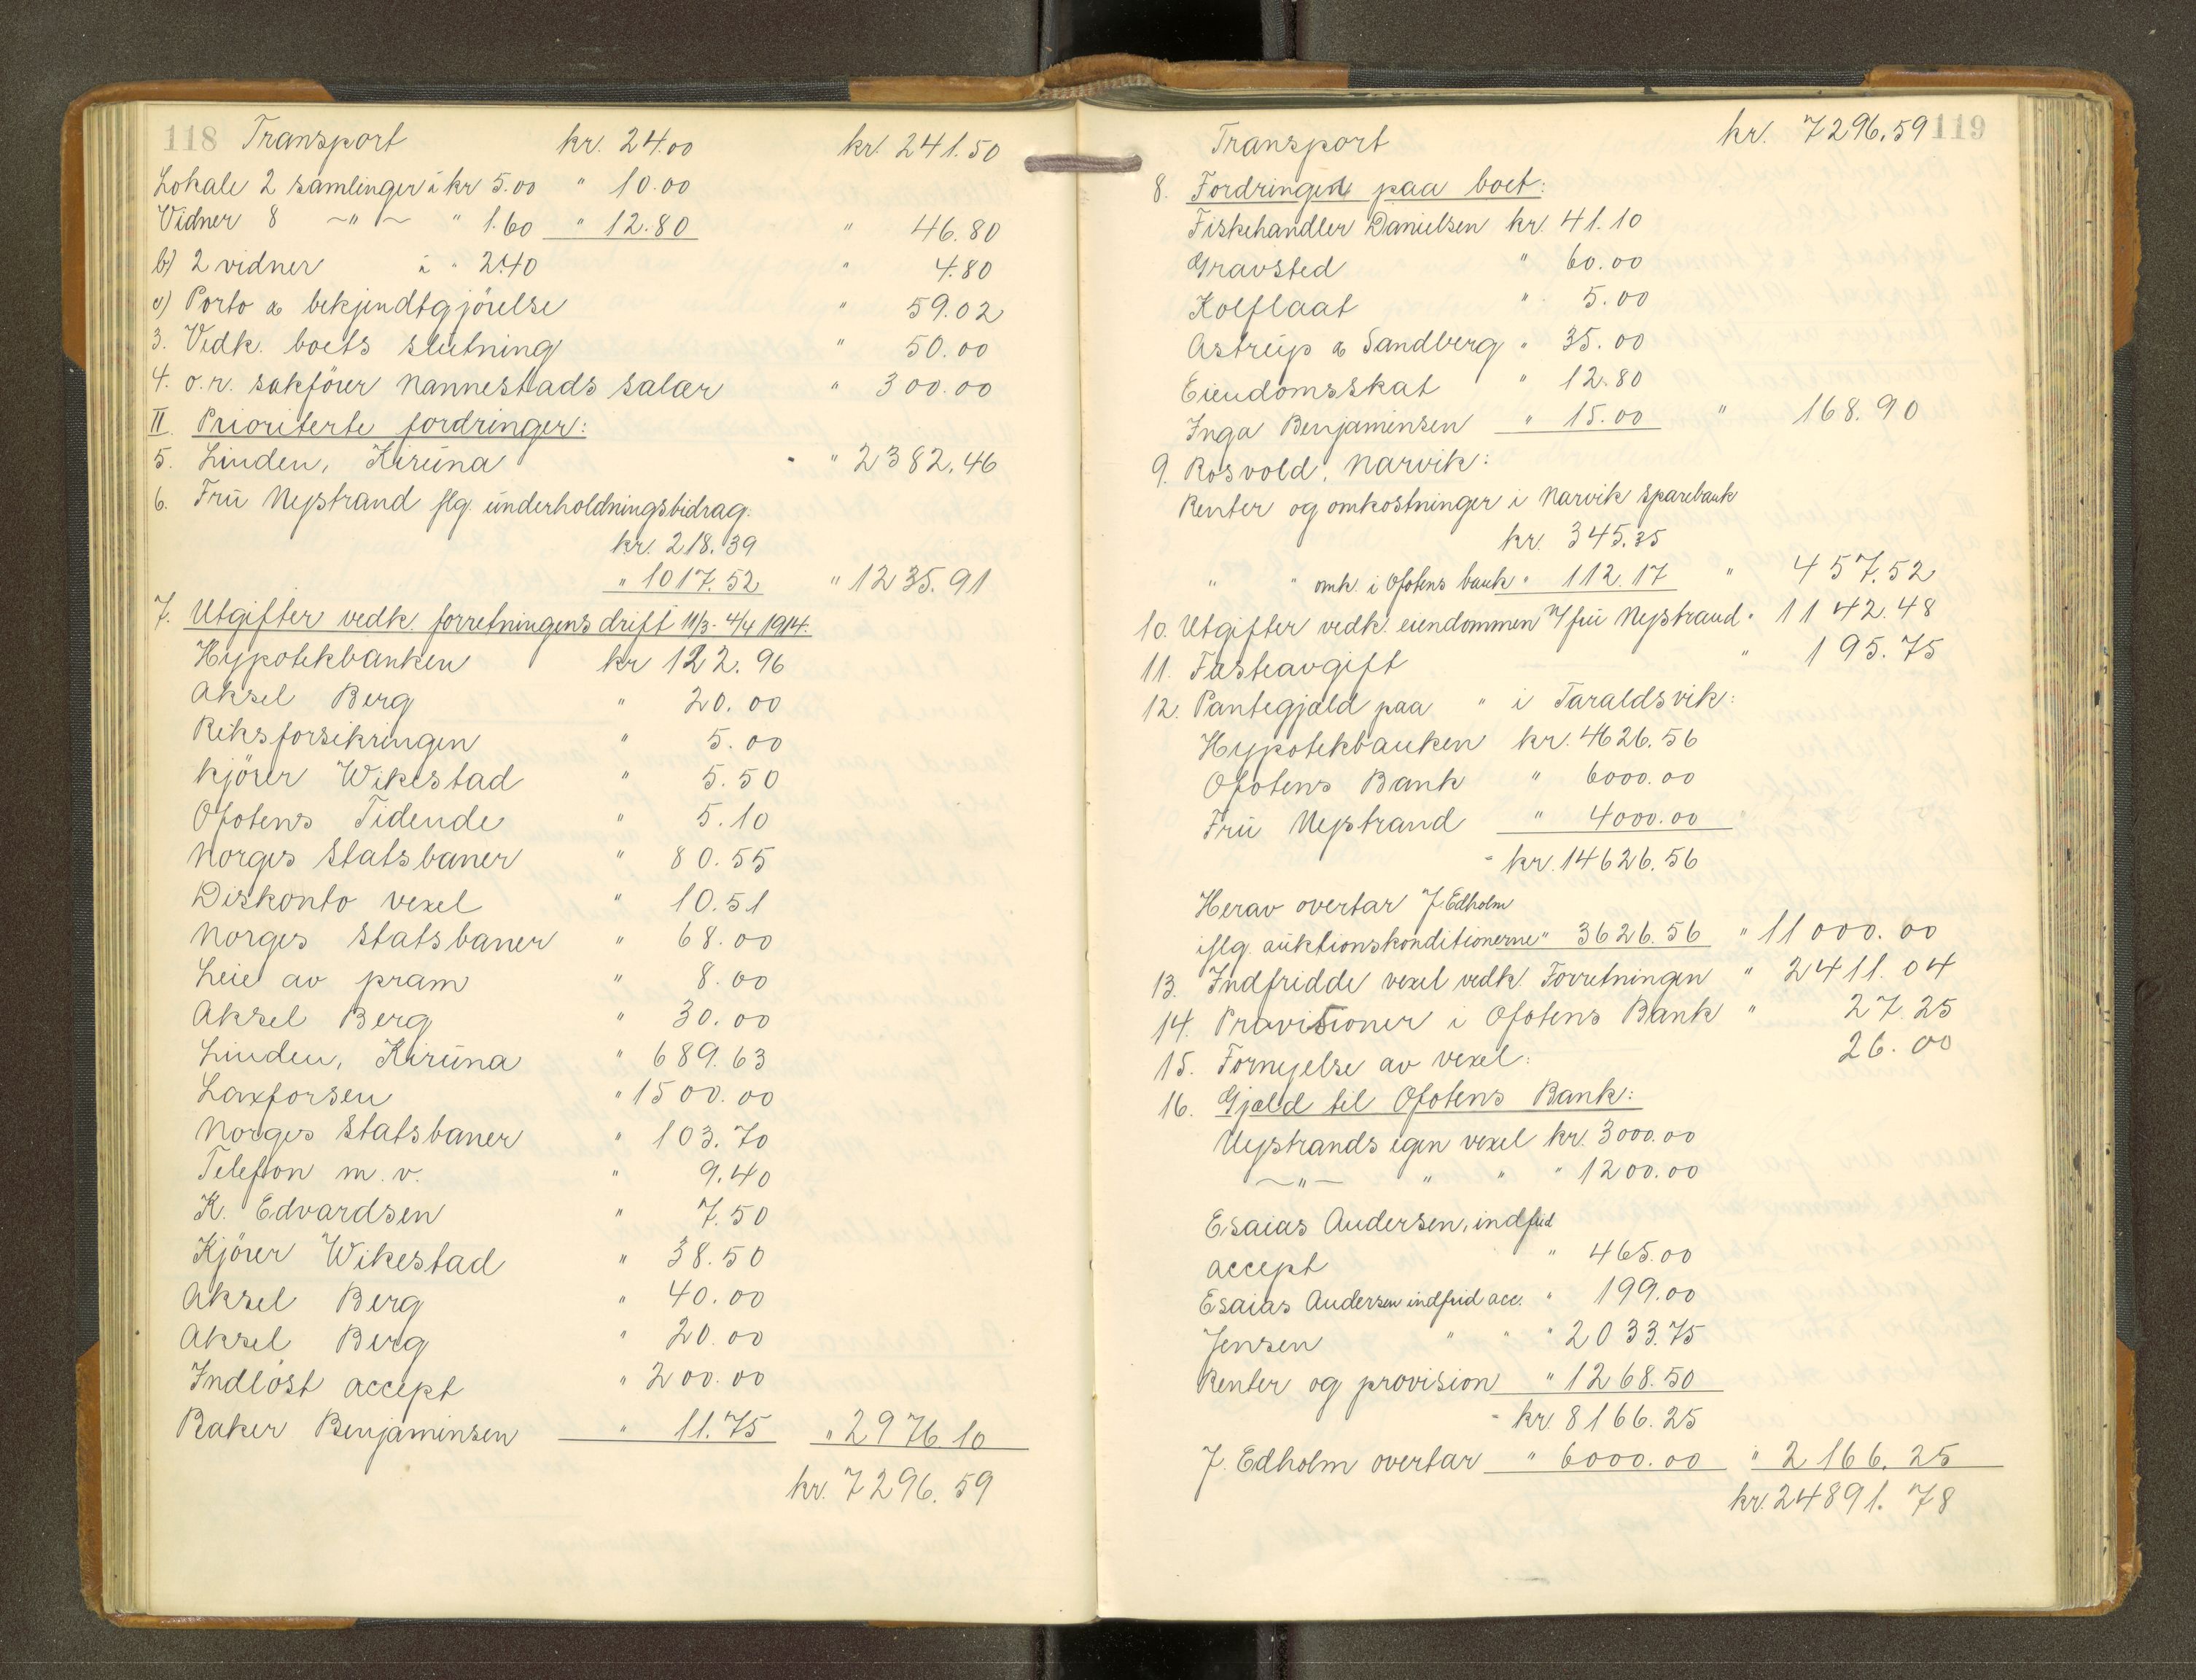 118 Transport kr. 24.00 kr. 241.50
Lokale 2 samlinger à kr 5.00 " 10.00
Vidner 8 ~"~ " 1.60 " 12.80 " 46.80
b) 2 vidner à " 2.40 " 4.80
c) Porto & bekjendtgjörelse " 59.02
3. Vedk. boets slutning " 50.00
4. o.r. sakförer Nannestads salær " 300.00
II. Prioriterte fordringer:
5. Linden, Kiruna " 2382.46
6. Fru Nystrand flg. underholdningsbidrag.
kr. 218.39
" 1017.52 " 1235.91
7. Utgifter vedk. forretningens drift 11/3 - 4/4 1914.
Hypotekbanken kr 122.96
Aksel Berg " 20.00
Riksforsikringen " 5.00
Kjörer Wikestad " 5.50
Ofotens Tidende " 5.10
Norges Statsbaner " 80.55
Diskonto vexel " 10.51
Norges Statsbaner " 68.00
Leie av pram " 8.00
Aksel Berg " 30.00
Linden, Kiruna " 689.63
Laxforsen " 1500.00
Norges Statsbaner " 103.70
Telefon m.v. " 9.40
K. Edvardsen " 7.50
Kjörer Wikestad " 38.50
Aksel Berg " 40.00
Aksel Berg " 20.00
Indlöst accept " 200.00
Baker Benjaminsen " 11.75 " 2976 10
kr. 7296.59
Transport kr. 7296.59 119
8. Fordringer paa boet:
Fiskehandler Danielsen kr. 41.10
Gravsted " 60.00
Kolflaat " 5.00
Astrup & Sandberg " 35.00
Eiendomsskat " 12.80
Inga Benjaminsen " 15.00 " 168.90
9. Rosvold, Narvik:
Renter og omkostninger i Narvik Sparebank
kr. 345.35
" " omk. i Ofotens bank " 112.17 " 457.52
10. Utgifter vedk. eiendommen v/fru Nystrand " 1142.48
11. Festeavgift " 195.75
12. Pantegjæld paa " i Taraldsvik:
Hypotekbanken kr. 4626.56
Ofotens Bank " 6000.00
Fru Nystrand " 4000.00
kr. 14626.56
Herav overtar J. Edholm
iflg. auktionskonditionerne " 3626.56 " 11000.00
13. Indfridde vexel vedk. Forretningen " 2411.04
14. Provisioner i Ofotens Bank " 27.25
15. Fornyelse av vexel: 26.00
16. Gjæld til Ofotens Bank:
Nystrands egen vexel kr. 3000.00
~"~ " " " 1200.00
Esaias Andersen, indfrid
accept " 465.00
Esaias Andersen indfrid acc. " 199.00
Jensen " " " 2033.75
Renter og provision " 1268.50
kr. 8166.25
J. Edholm overtar " 6000.00 " 2166.25
kr. 24891.78